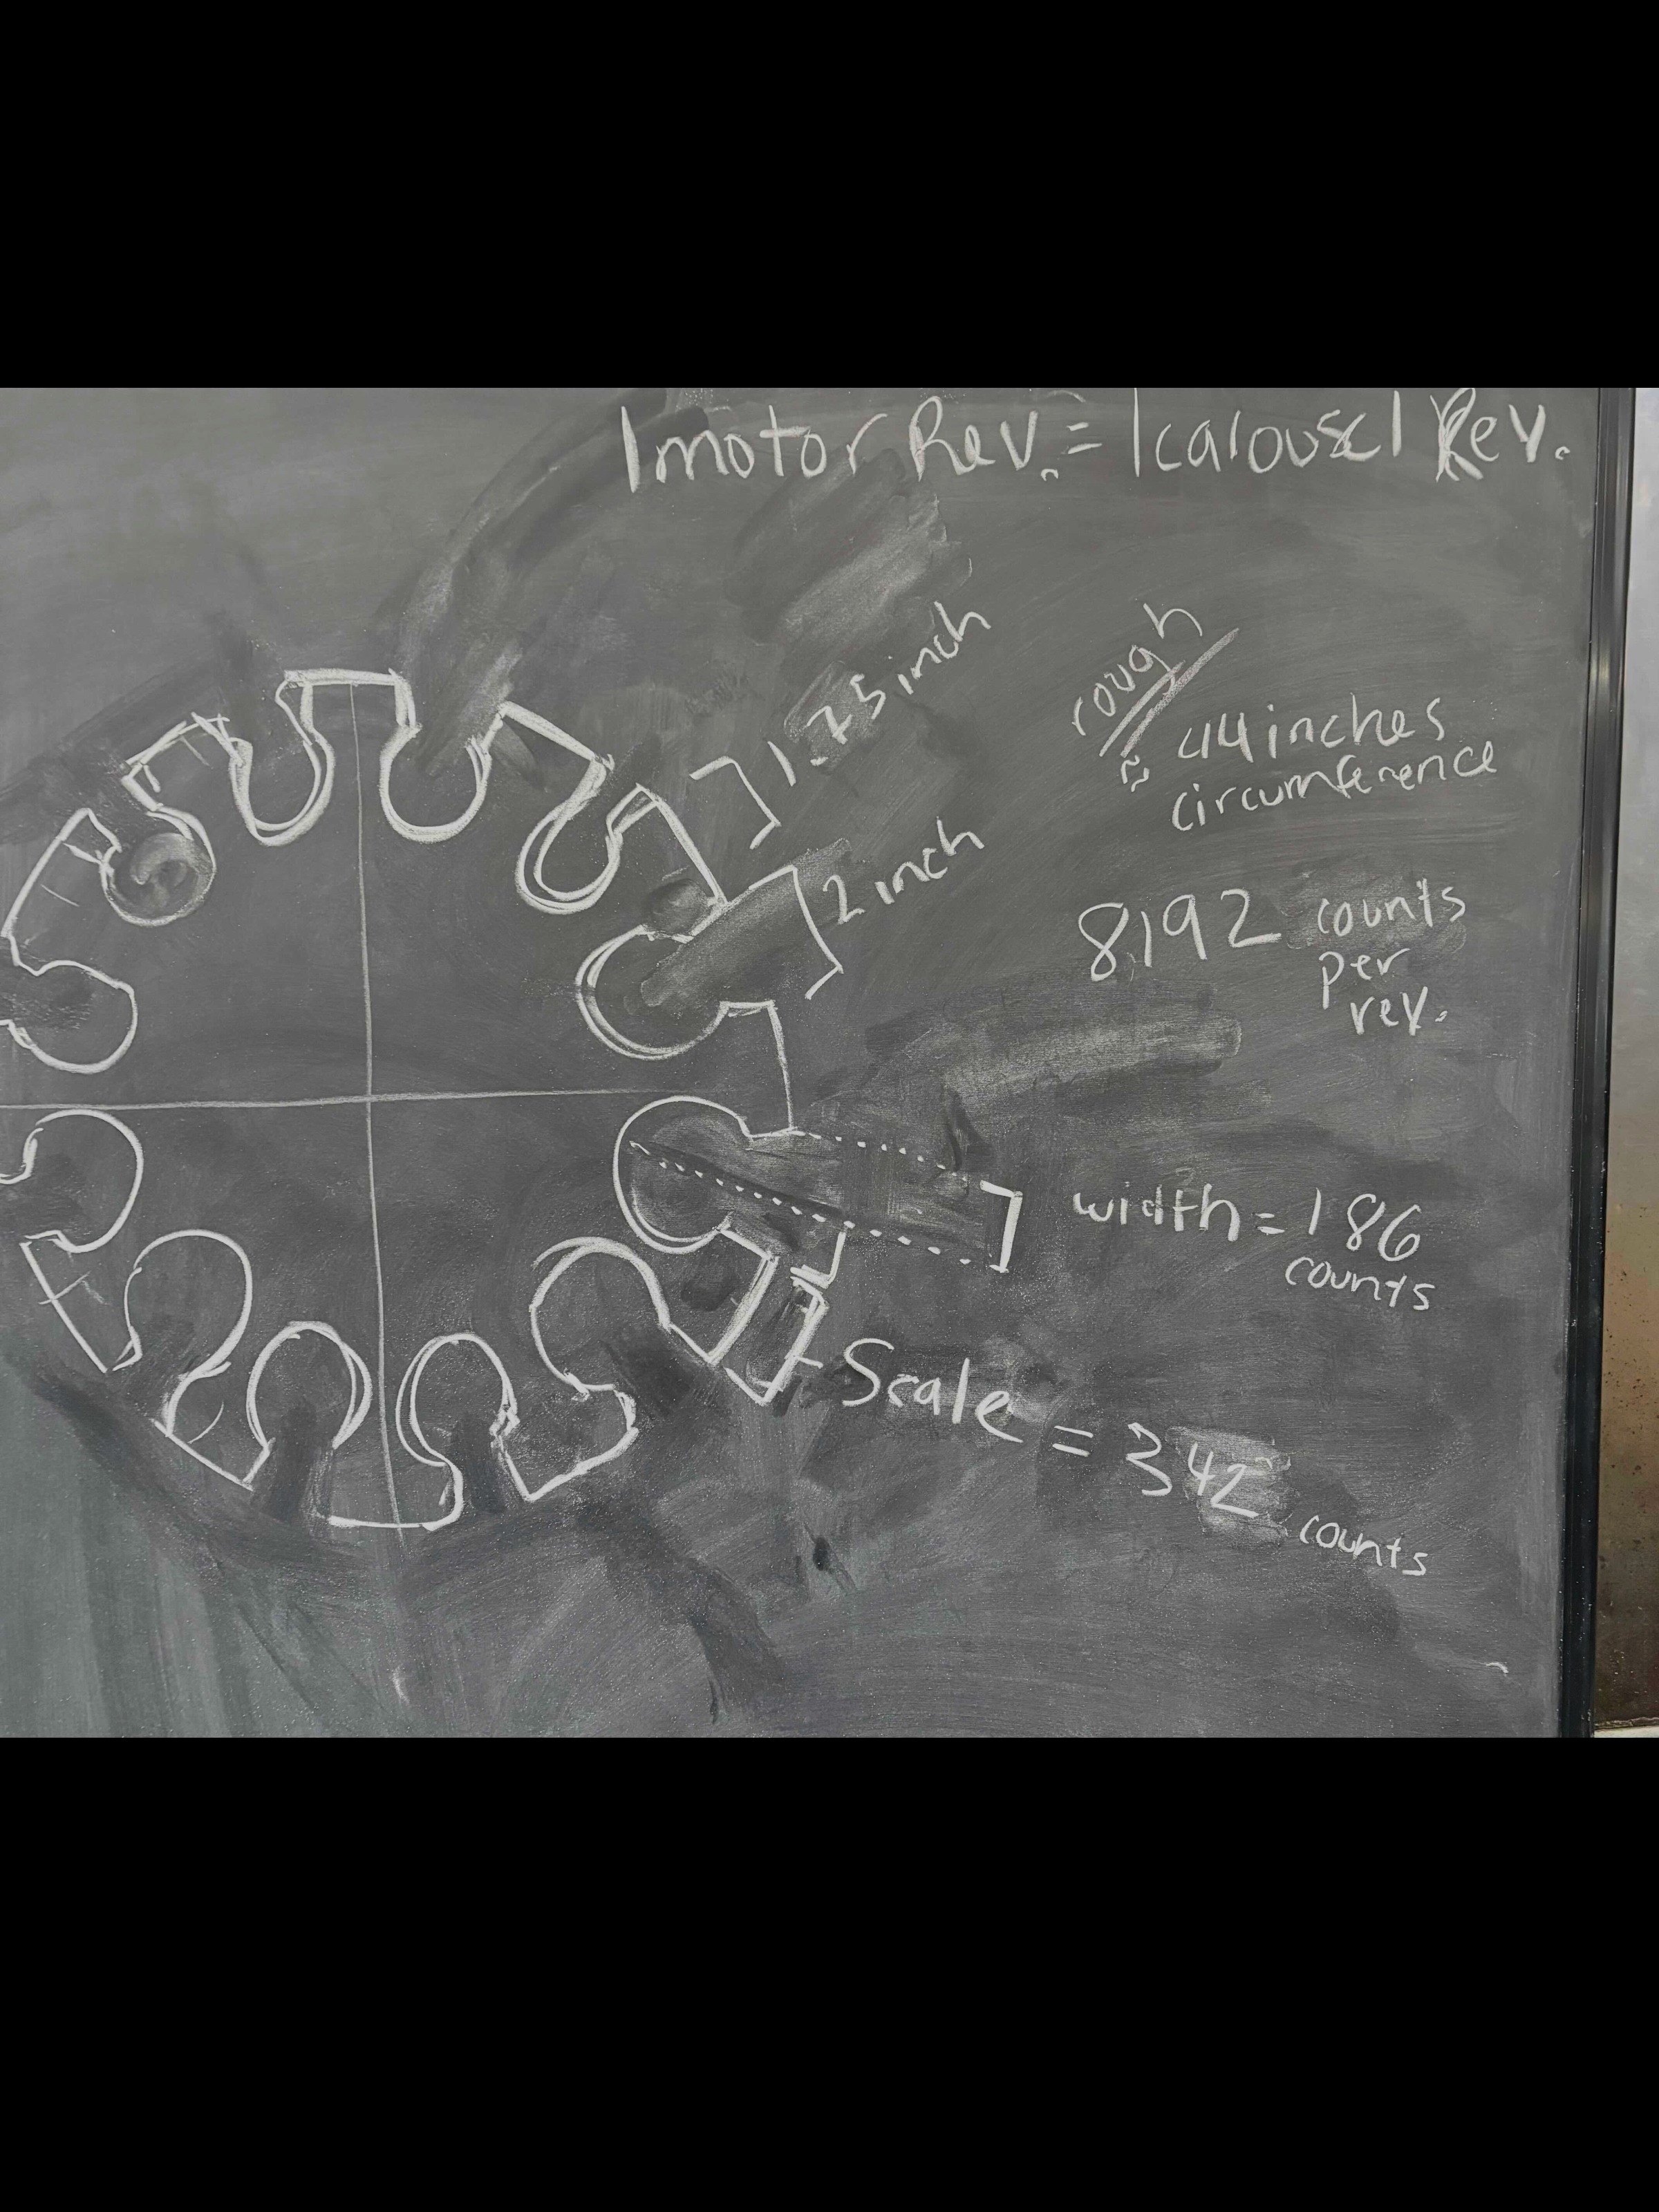 1 motor Rev. = 1 calousel Rev.
1.75 inch
rough
≈ 44 inches
circumference
2 inch
8192 counts
per
rev.
width = 186
counts
Scale = 342 counts